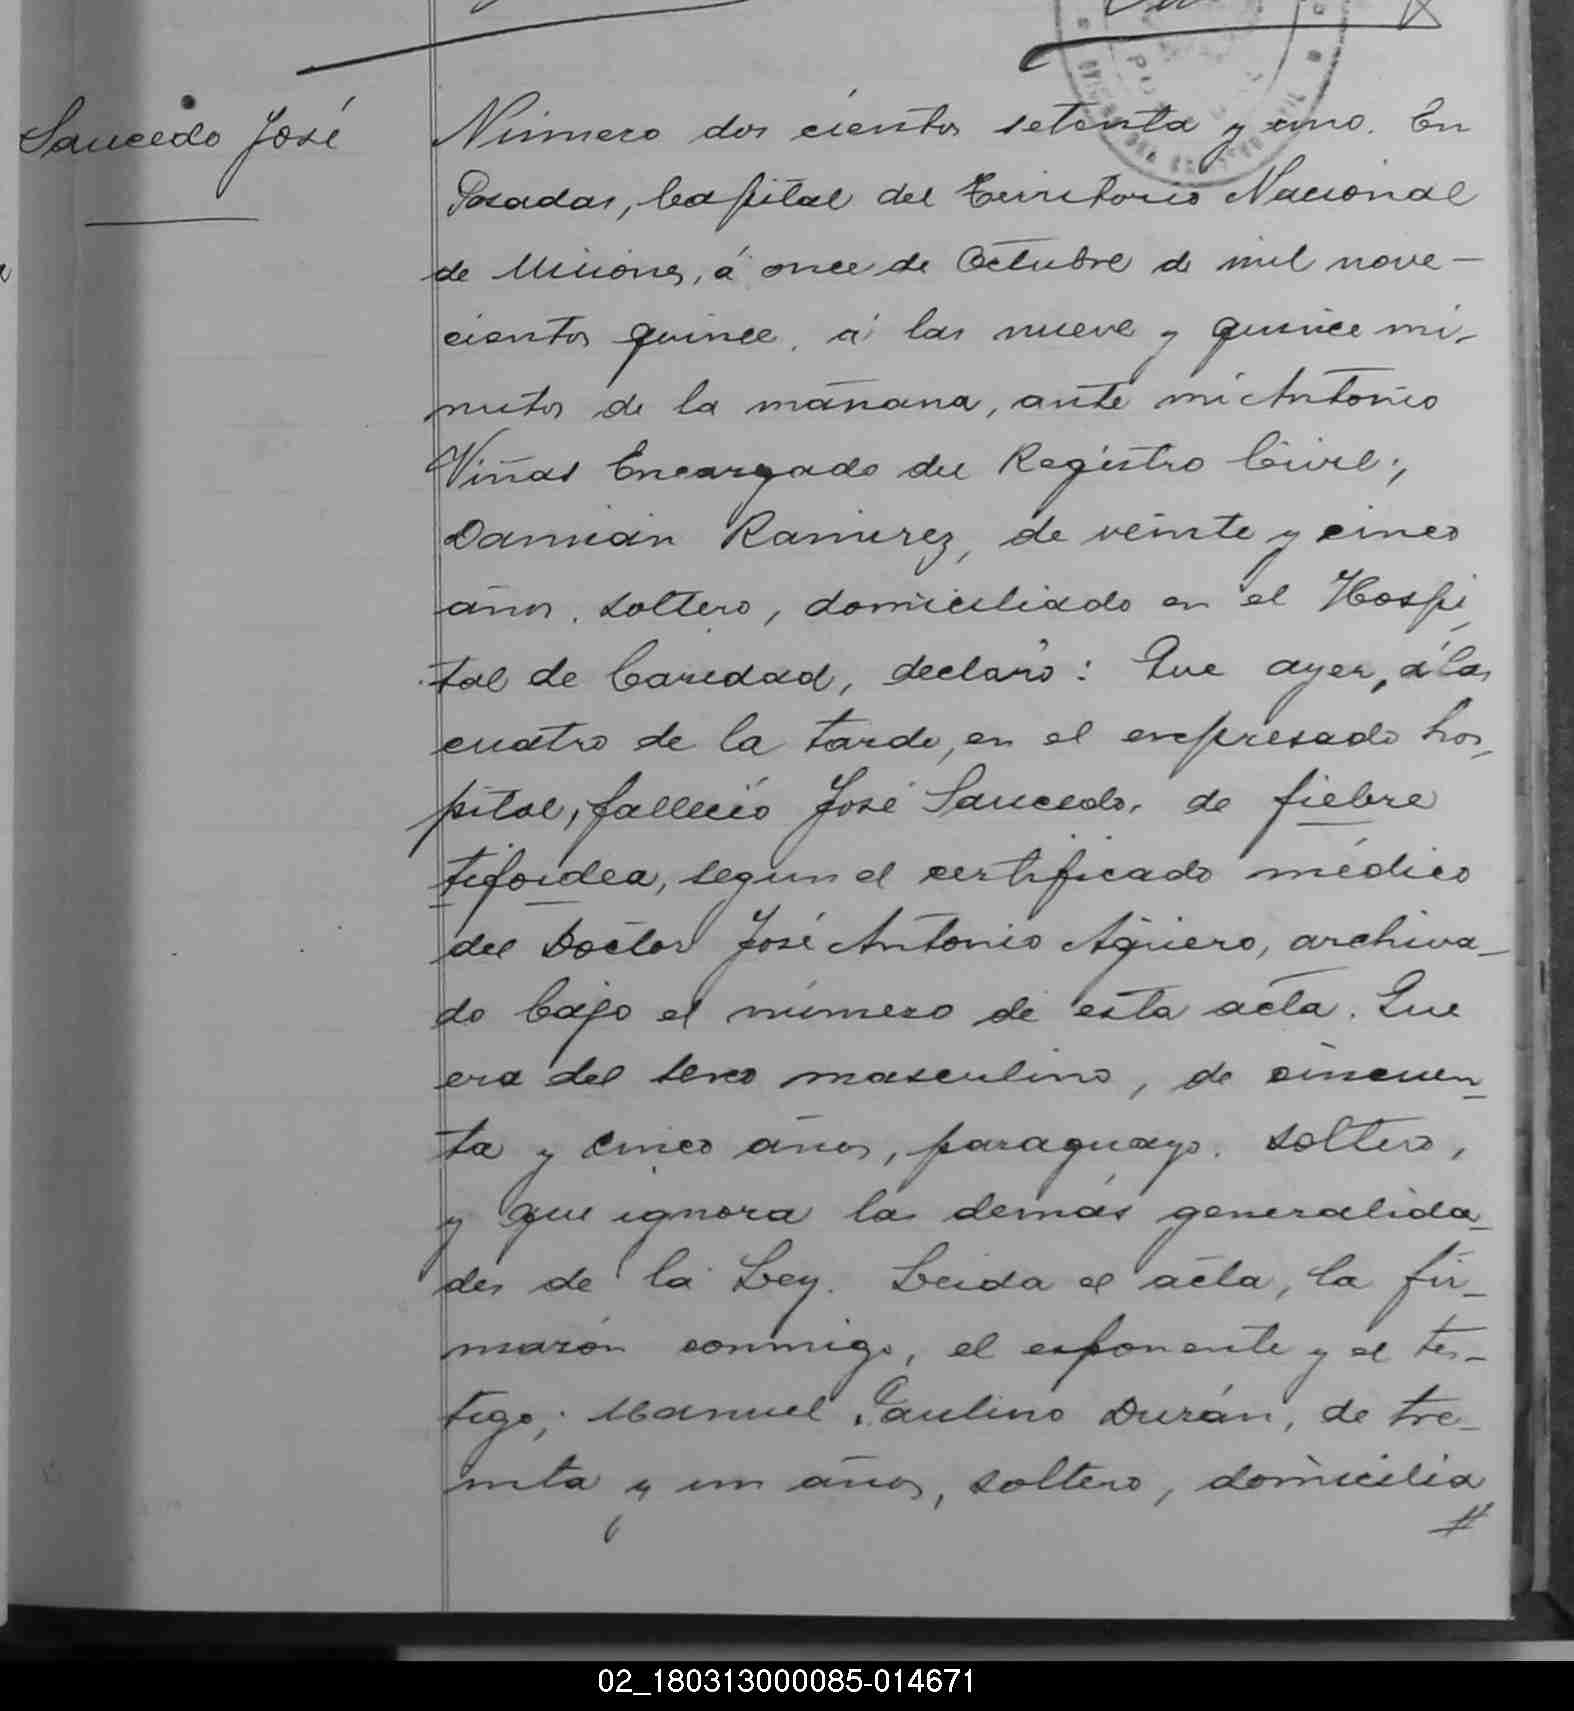 Saucedo José
Número dos cientos setenta y uno. En
Posadas, Capital del Territorio Nacional
de Misiones, á once de Octubre de mil nove-
cientos quince, á las nueve y quince mi-
nutos de la mañana, ante mi Antonio
Viñas Encargado del Registro Civil;
Damián Ramirez, de veinte y cinco
años, soltero, domiciliado en el Hospi-
tal de Caridad, declaró: Que ayer, á las
cuatro de la tarde, en el expresado hos-
pital, falleció José Saucedo, de fiebre
tifoidea, segun el certificado médico
del Doctor José Antonio Agüero, archiva-
do bajo el número de esta acta. Que
era del sexo masculino, de cincuen-
ta y cinco años, paraguayo, soltero,
y que ignora las demás generalida-
des de la Ley. Leida el acta, la fir-
marón conmigo, el exponente y el tes-
tigo; Manuel Paulino Durán, de tre-
inta y un años, soltero, domicilia
#
02_180313000085-014671